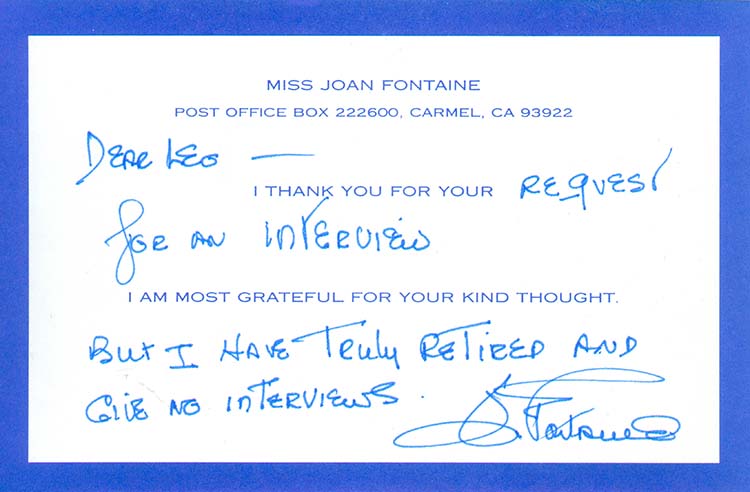 MISS JOAN FONTAINE
POST OFFICE BOX 222600, CARMEL, CA 93922
DEAR LEO —
I THANK YOU FOR YOUR REQUEST
FOR AN INTERVIEW
I AM MOST GRATEFUL FOR YOUR KIND THOUGHT.
BUT I HAVE TRULY RETIRED AND
GIVE NO INTERVIEWS.
J. Fontaine